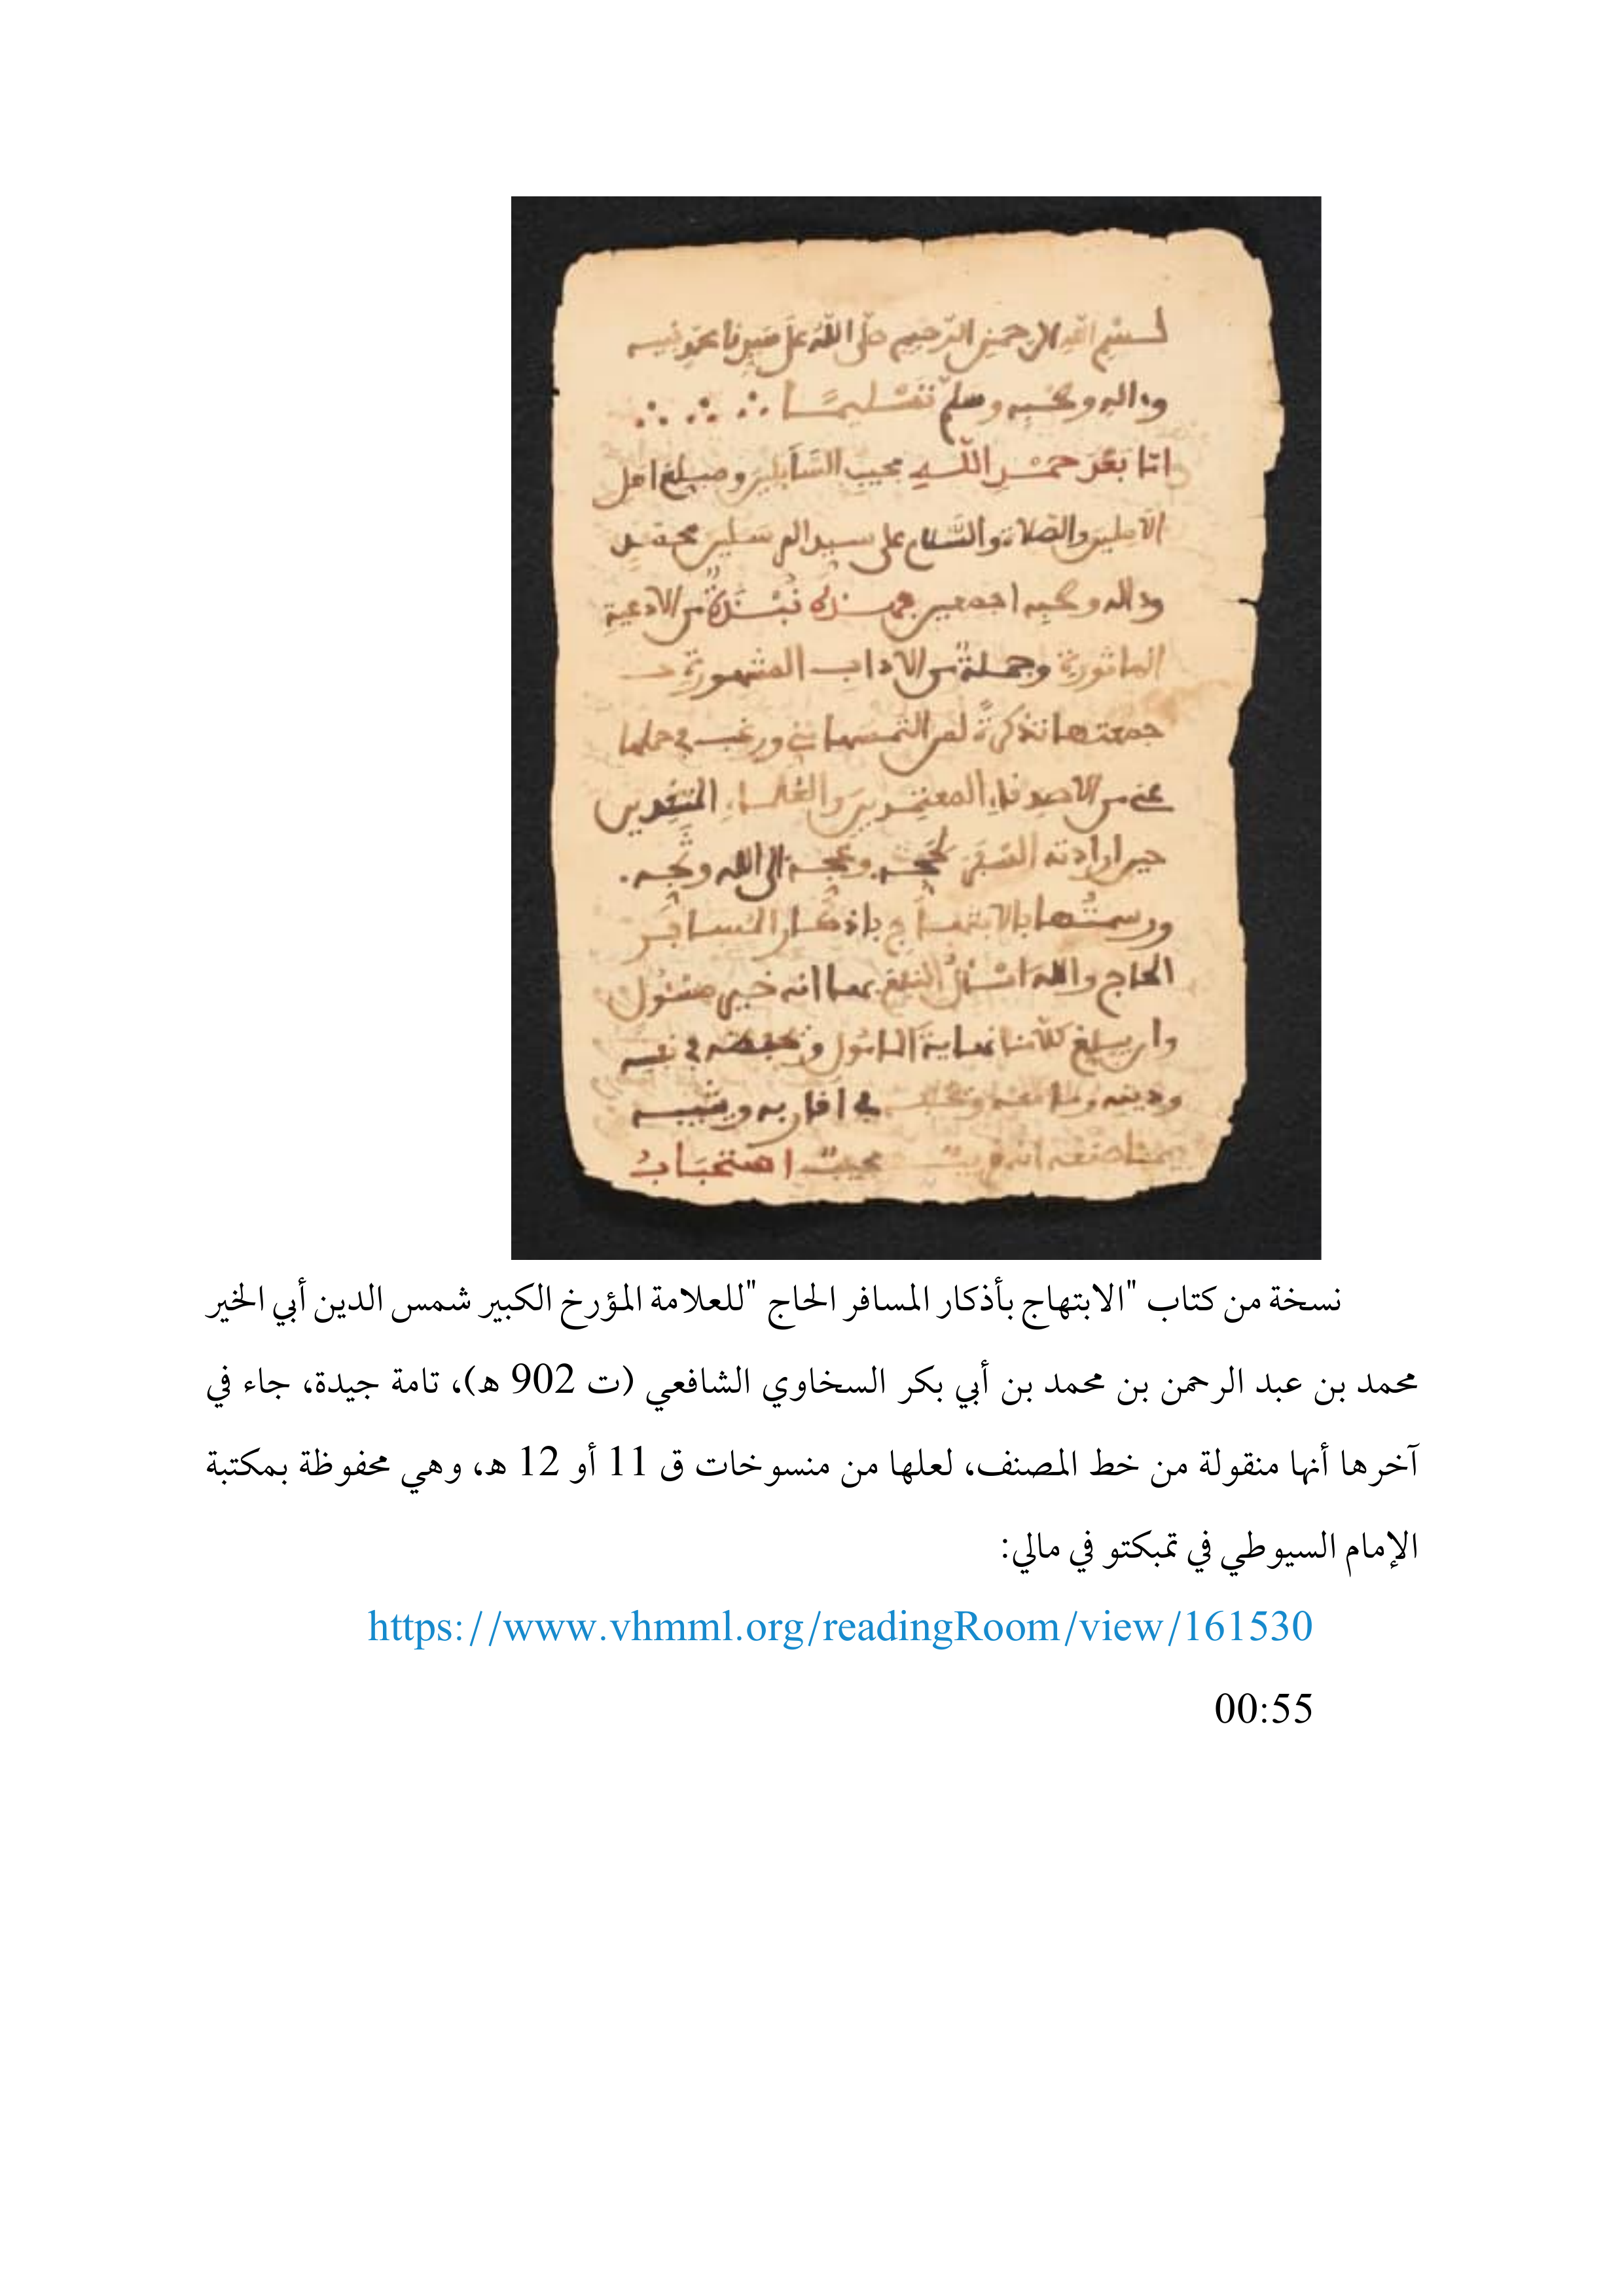 لبسم الله الرحمن الرحيم صلى الله على سيدنا محمد نبيه
وءاله وصحبه وسلم تسليما
اما بعد حمد الله مجيب السايلين ومبلغ امل
الاملين والصلاة والسلام على سيد المرسلين محمد
وءاله وصحبه اجمعين فهذه نبذة من الادعية
الماثورة وجملة من الاداب المشهورة
جمعتها تذكرة لمن التمسها مني ورغب في حملها
عني من الاصدقاء المعتمدين والفضلاء
حين ارادته السفر لحجه وعجه الى الله وثجه
ورسمتها بالابتهاج باذكار المسافر
الحاج والله اسئل النفع بها انه خير مسئول
وان يبلغ كلا منا نهاية المامول ويحفظه في نفسه
ودينه في اقاربه وبنيه
انه قريب مجيب استحباب
نسخة من كتاب "الابتهاج بأذكار المسافر الحاج "للعلامة المؤرخ الكبير شمس الدين أبي الخير
محمد بن عبد الرحمن بن محمد بن أبي بكر السخاوي الشافعي (ت 902 هـ)، تامة جيدة، جاء في
آخرها أنها منقولة من خط المصنف، لعلها من منسوخات ق 11 أو 12 هـ، وهي محفوظة بمكتبة
الإمام السيوطي في تمبكتو في مالي:
https://www.vhmml.org/readingRoom/view/161530
00:55